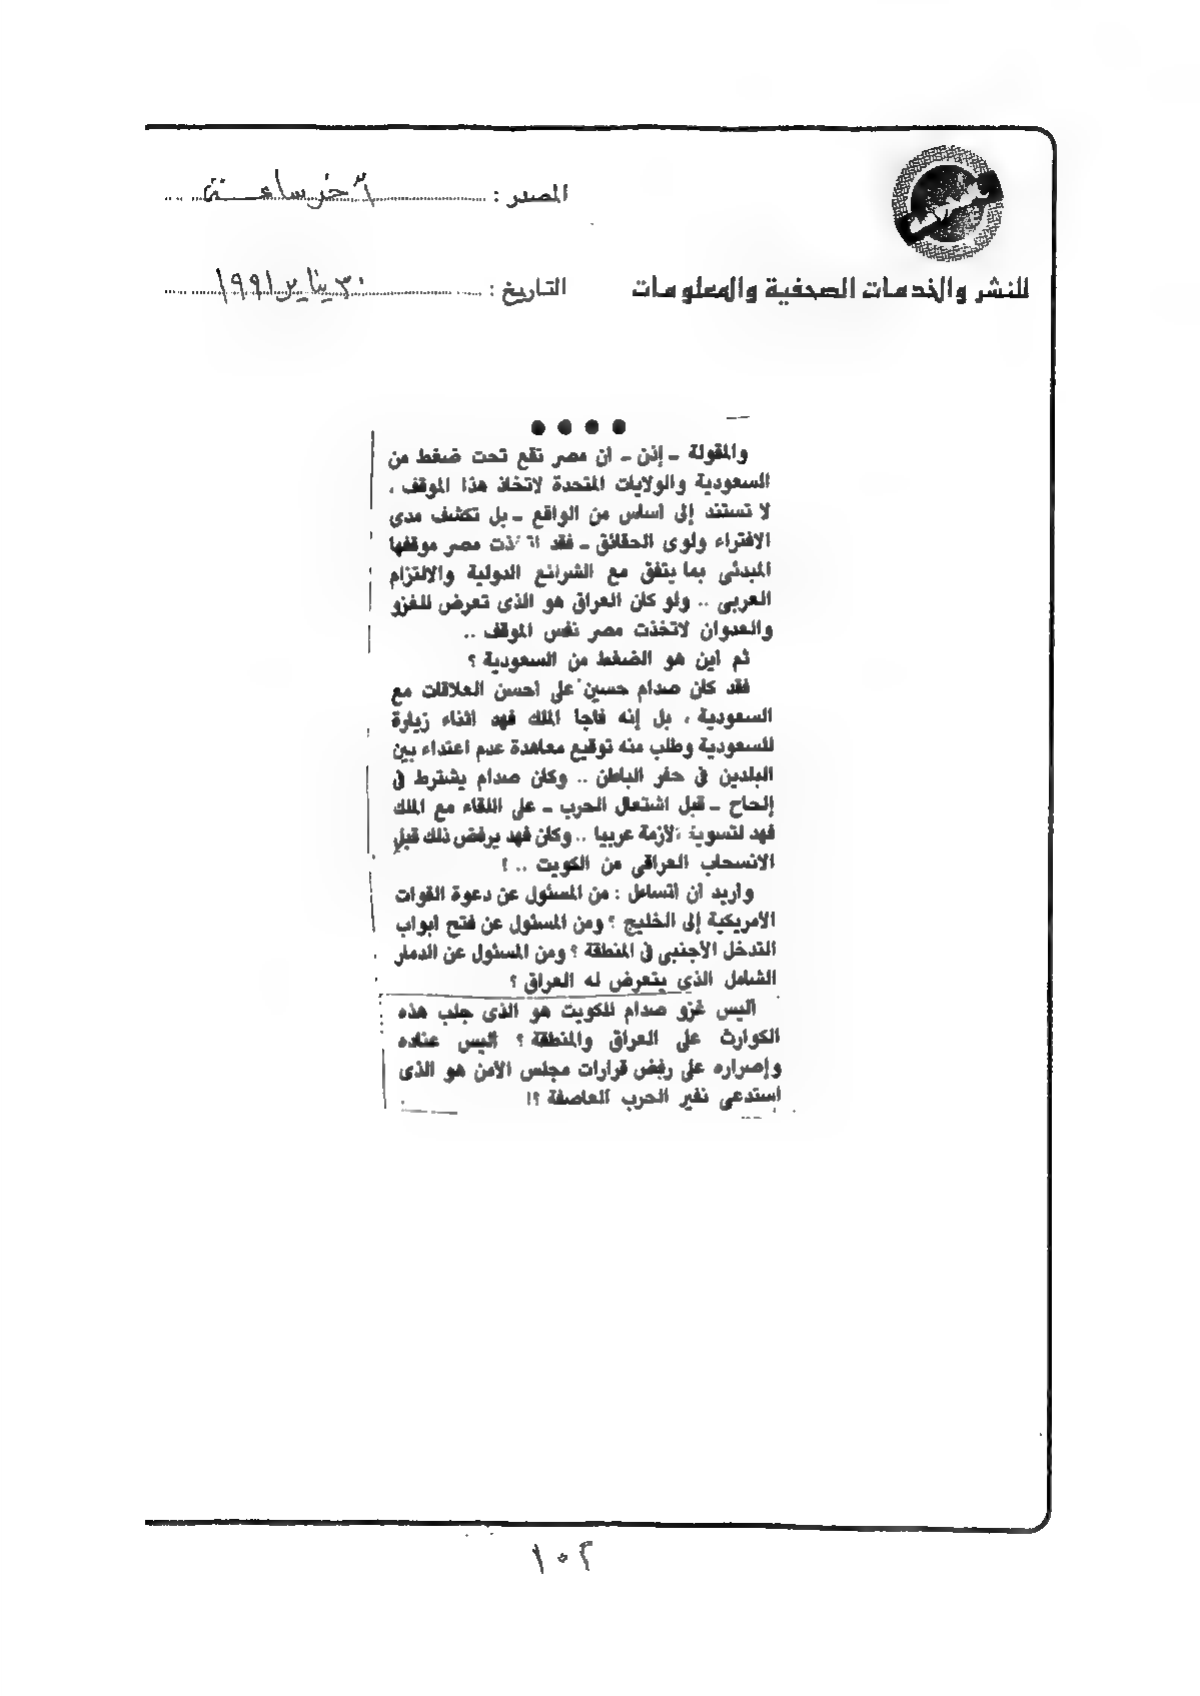 المصدر : آخر ساعة
للنشر والخدمات الصحفية والمعلومات
التاريخ : ٣٠ يناير ١٩٩١
● ● ● ●
والمقولة ـ إذن ـ ان مصر تقع تحت ضغط من
السعودية والولايات المتحدة لاتخاذ هذا الموقف ،
لا تستند إلى اساس من الواقع ـ بل تكشف مدى
الافتراء ولوى الحقائق ـ فقد اتخذت مصر موقفها
المبدئى بما يتفق مع الشرائع الدولية والالتزام
العربى .. ولو كان العراق هو الذى تعرض للغزو
والعدوان لاتخذت مصر نفس الموقف ..
ثم اين هو الضغط من السعودية ؟
فقد كان صدام حسين على احسن العلاقات مع
السعودية ، بل إنه فاجأ الملك فهد اثناء زيارة
للسعودية وطلب منه توقيع معاهدة عدم اعتداء بين
البلدين فى حفر الباطن .. وكان صدام يشترط فى
إلحاح ـ قبل اشتعال الحرب ـ على اللقاء مع الملك
فهد لتسوية الازمة عربيا .. وكان فهد يرفض ذلك قبل
الانسحاب العراقى من الكويت .. ؟
واريد ان اتساءل : من المسئول عن دعوة القوات
الأمريكية إلى الخليج ؟ ومن المسئول عن فتح ابواب
التدخل الأجنبى فى المنطقة ؟ ومن المسئول عن الدمار
الشامل الذي يتعرض له العراق ؟
أليس غزو صدام للكويت هو الذى جلب هذه
الكوارث على العراق والمنطقة ؟ أليس عناده
وإصراره على رفض قرارات مجلس الأمن هو الذى
استدعى نفير الحرب العاصفة ؟!
١٠٢